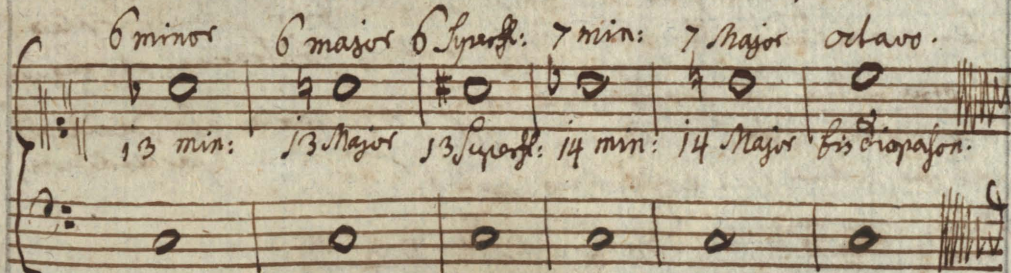 6 minor 6 major 6 Superfl: 7 min: 7 Major octavo.
13 min: 13 Major 13 Superfl: 14 min: 14 Major bisdiapason.